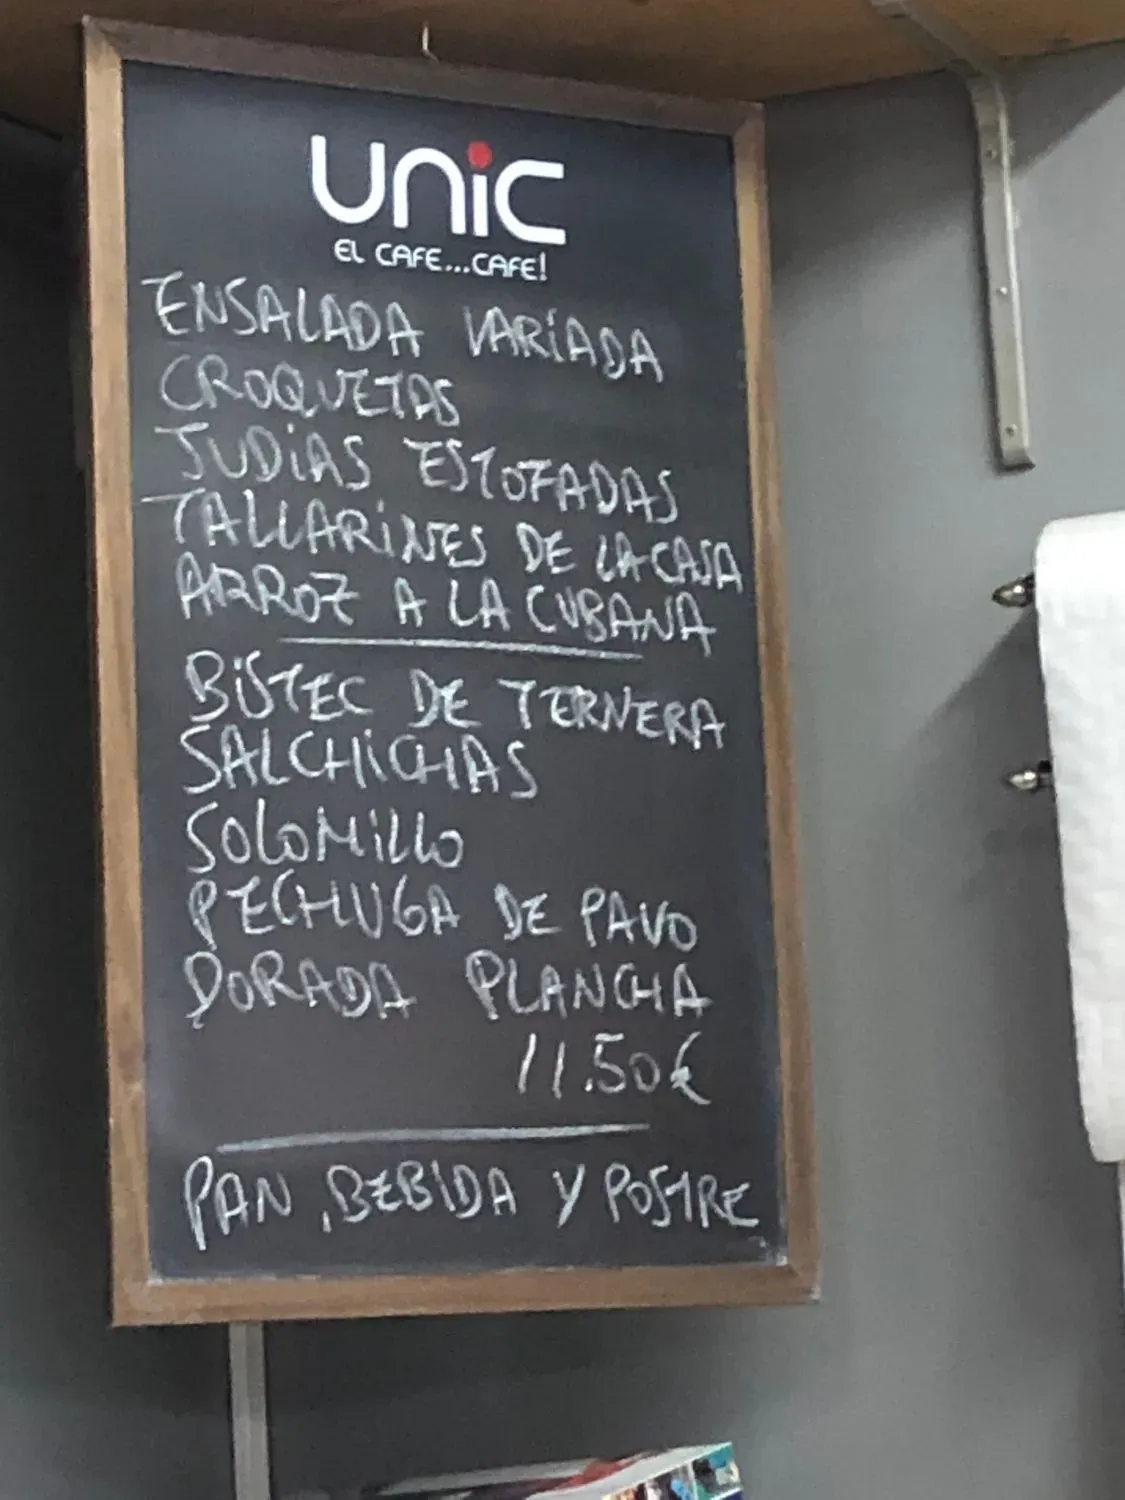 UNiC
EL CAFE...CAFE!
ENSALADA VARIADA
CROQUETAS
JUDIAS ESTOFADAS
TALLARINES DE LA CASA
ARROZ A LA CUBANA
BISTEC DE TERNERA
SALCHICHAS
SOLOMILLO
PECHUGA DE PAVO
DORADA PLANCHA
11.50€
PAN, BEBIDA Y POSTRE